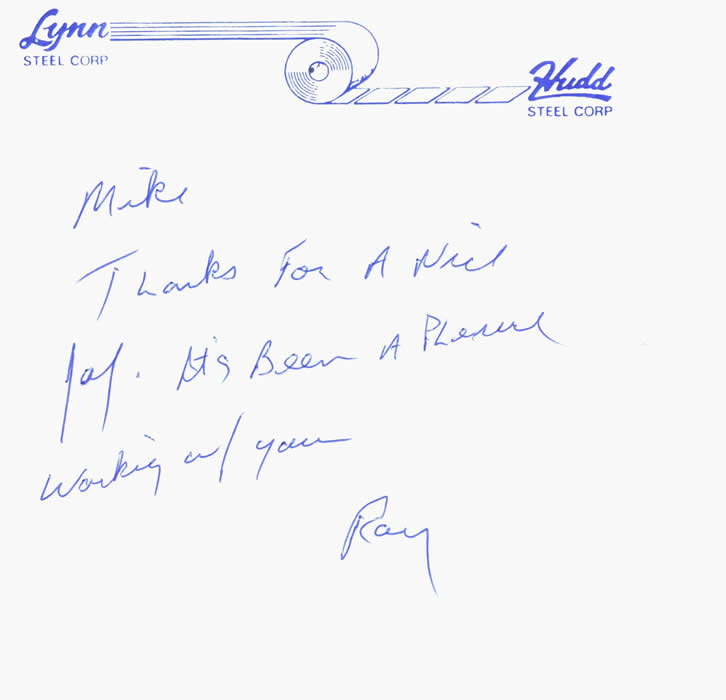 Lynn
STEEL CORP
Hudd
STEEL CORP
Mike
Thanks For A Nice
It's Been A Pleasure
working w/ you
Ray